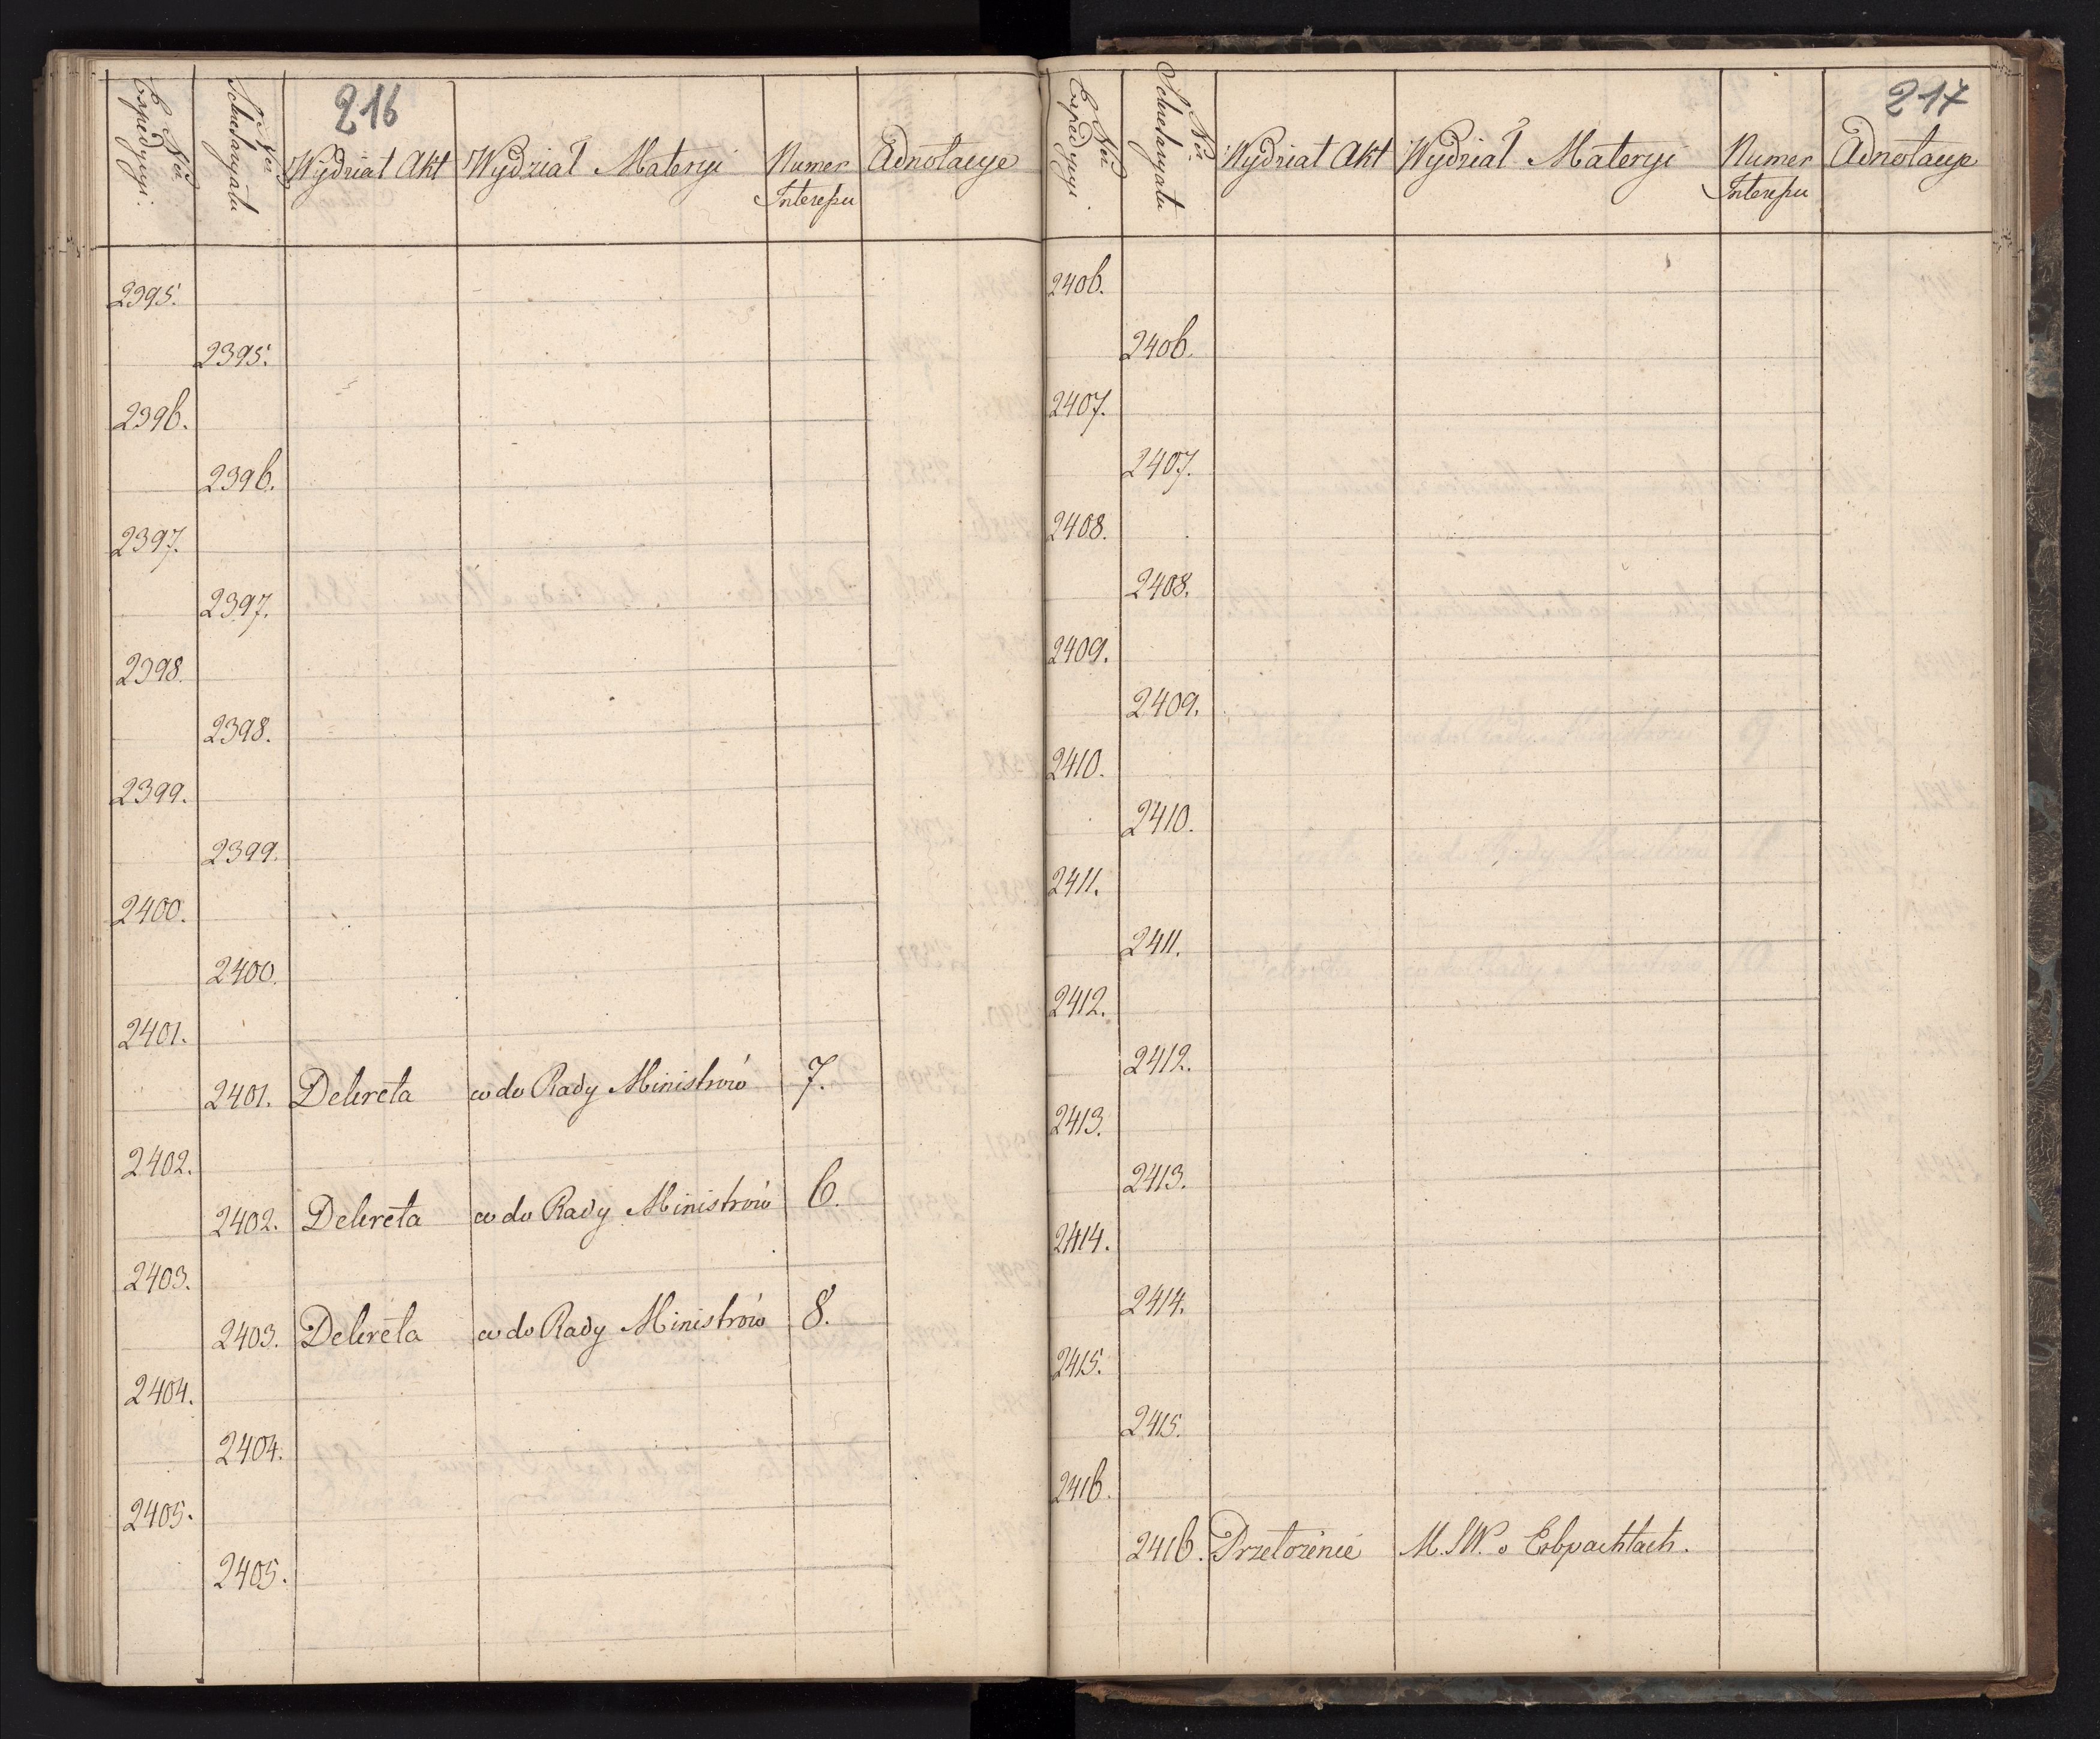 216
Nro Expedycyi.
Nro Sekretaryatu
Wydział Akt
Wydział Materyi
Numer Interessu
Adnotacye
2395.
2395.
2396.
2396.
2397.
2397.
2398.
2398.
2399.
2399.
2400.
2400.
2401.
2401. Dekreta co do Rady Ministrów 7.
2402.
2402. Dekreta co do Rady Ministrów 6.
2403.
2403. Dekreta co do Rady Ministrów 8.
2404.
2404.
2405.
2405.
217
Nro Expedycyi.
Nro Sekretaryatu
Wydział Akt
Wydział Materyi
Numer Interessu
Adnotacye
2406.
2406.
2407.
2407.
2408.
2408.
2409.
2409.
2410.
2410.
2411.
2411.
2412.
2412.
2413.
2413.
2414.
2414.
2415.
2415.
2416.
2416. Przełożenie M.SW. o Erbpachtach.